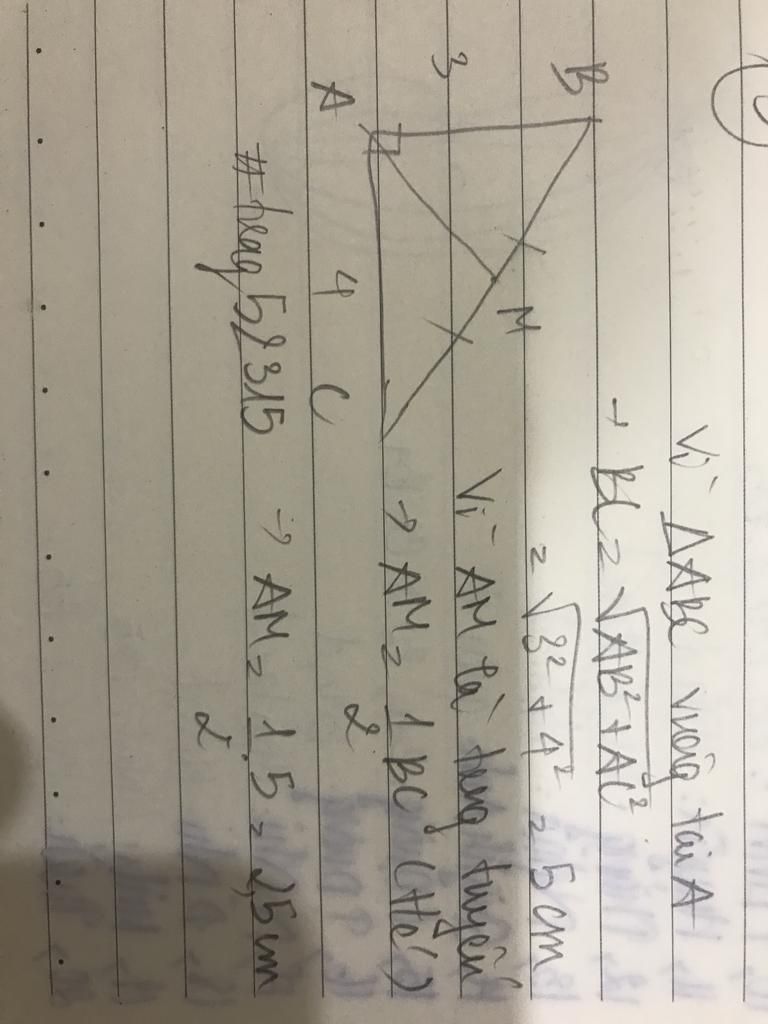 Vì ΔABC vuông tại A
→ BC = √AB² + AC²
= √3² + 4² = 5 cm
Vì AM là trung tuyến
→ AM = 1/2 BC
→ AM = 1/2 . 5 = 2,5 cm
B
3
A
M
4
C